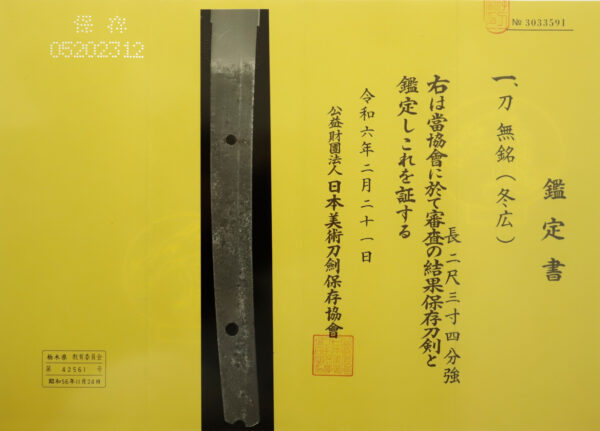 № 3033591
鑑定書
一、刀 無銘(冬広)
長二尺三寸四分強
右は當協會に於て審査の結果保存刀剣と
鑑定しこれを証する
令和六年二月二十一日
公益財團法人 日本美術刀劍保存協會
保存
05202312
栃木県 教育委員会
第 42561 号
昭和56年11月24日